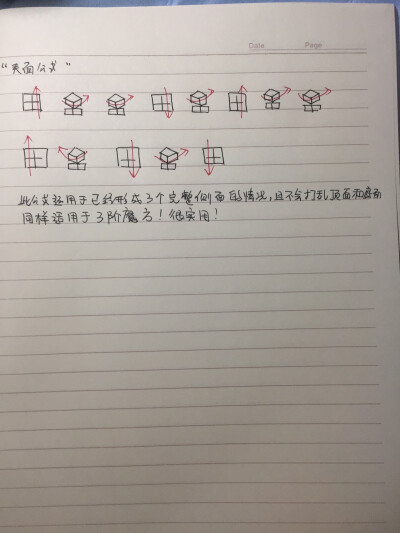 Date Page
“表面公式”
此公式适用于已经形成3个完整侧面的情况，且不会打乱顶面和底面
同样适用于3阶魔方！很实用！